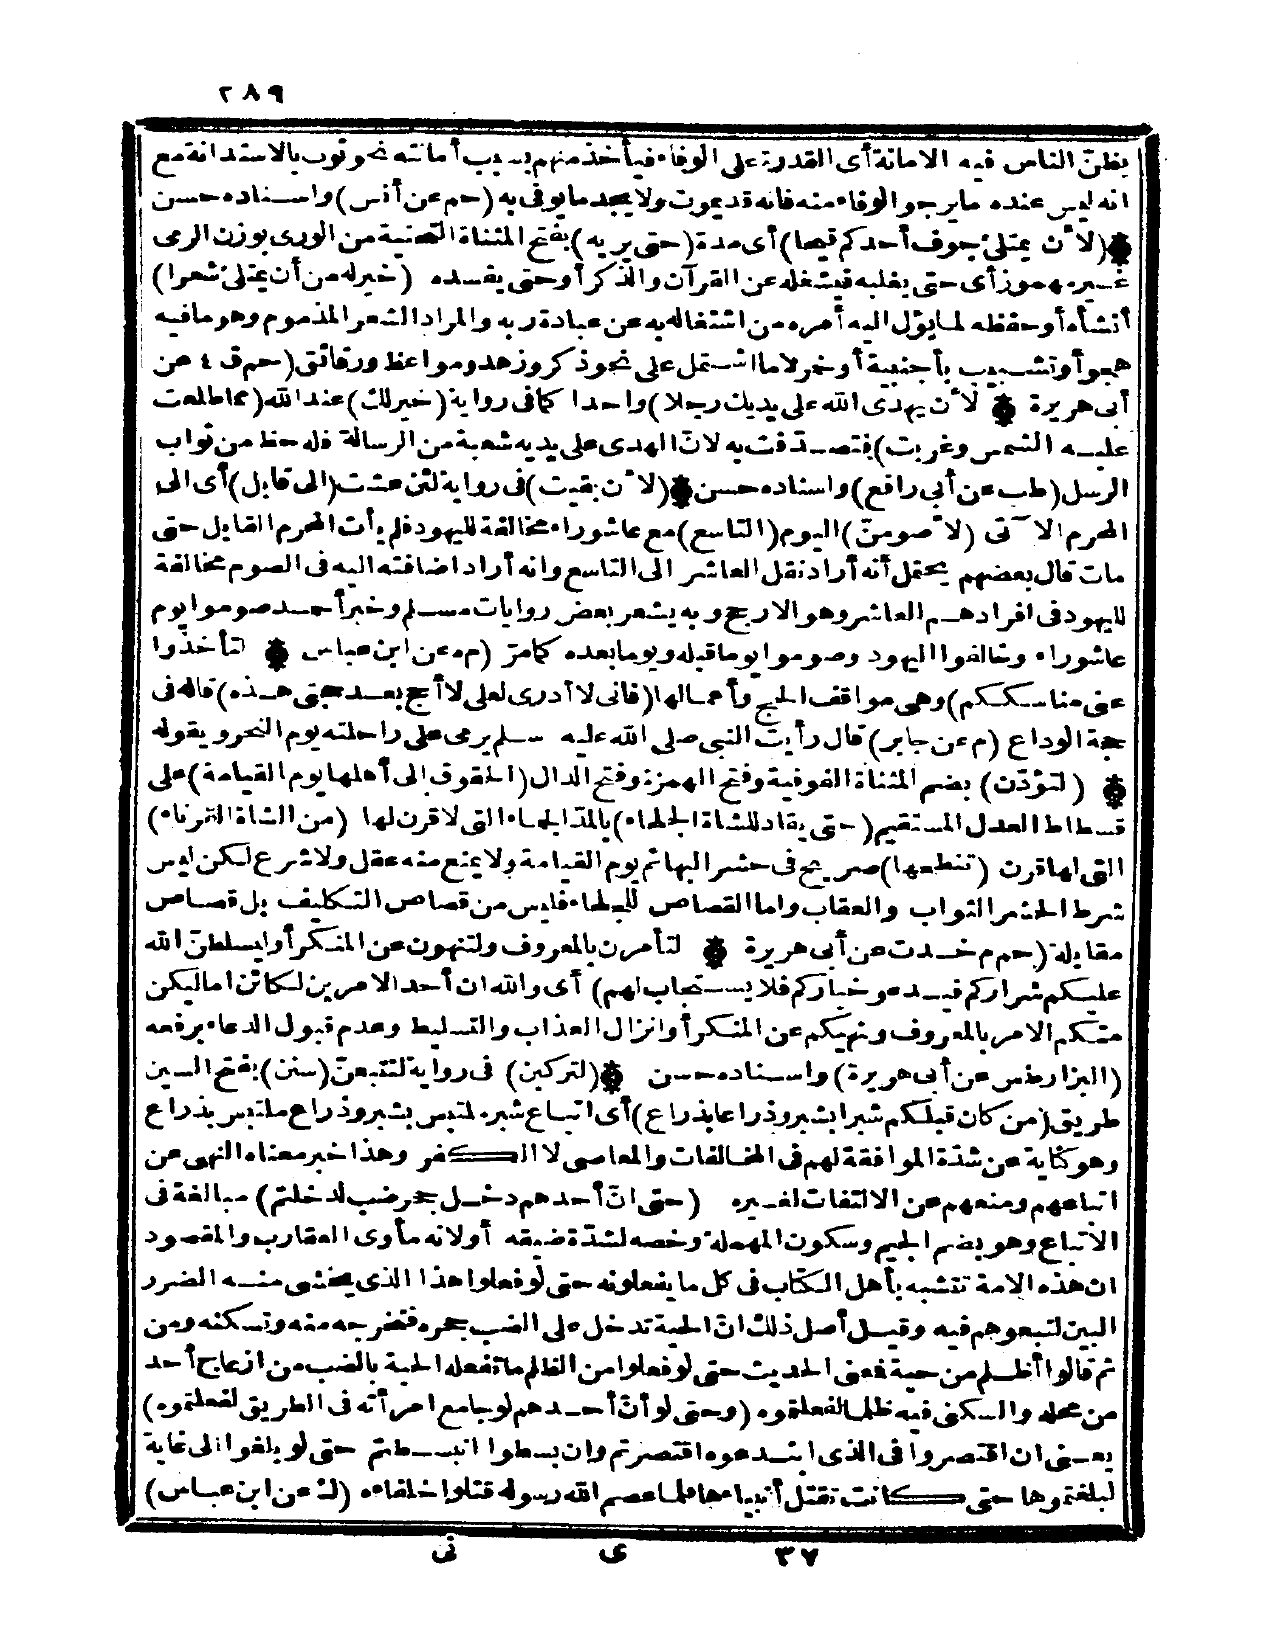 ٢٨٩
يظنّ الناس فيه الامانة أى القدرة على الوفاء فيأخذ منهم بسبب أمانته نحو ثوب بالاستدانة مع
انه ليس عنده ما يرجو الوفاء منه فانه قد يموت ولا يجد ما يوفى به (حم عن أنس) واسناده حسن
(لا ُن يمتلئ جوف أحدكم قيحا) أى مدة (حتى يريه) بفتح المثناة التحتية من الورى بوزن الرمى
غير مهموز أى حتى يغلبه فيشغله عن القرآن والذكر أو حتى يفسده (خير له من أن يمتلئ شعرا)
أنشأه أو حفظه لما يؤل اليه أمره من اشتغاله به عن عبادة ربه والمراد الشعر المذموم وهو مافيه
هجو أو تشبيب بأجنبية أو خمر لا ما اشتمل على نحو ذكر وزهد ومواعظ ورقائق (حم ق ٤ عن
أبى هريرة لأن يهدى الله على يديك رجلا) واحدا كما فى رواية (خير لك) عند الله (مما طلعت
عليه الشمس وغربت) فتصدقت به لانّ الهدى على يديه شعبة من الرسالة فله حظ من ثواب
الرسل (طب عن أبى رافع) واسناده حسن (لا ُن بقيت) فى رواية لئن عشت (الى قابل) أى الى
المحرم الآتى (لاصومنّ) اليوم (التاسع) مع عاشوراء مخالفة لليهود فلم يأت المحرم القابل حتى
مات قال بعضهم يحتمل أنه أراد نقل العاشر الى التاسع وانه أراد اضافته اليه فى الصوم مخالفة
لليهود فى افرادهم العاشر وهو الارجح وبه يشعر بعض روايات مسلم وخبر أحمد صوموا يوم
عاشوراء وخالفوا اليهود وصوموا يوما قبله ويوما بعده كمامرّ (م ه عن ابن عباس لتأخذوا
عنى مناسككم) وهى مواقف الحج وأعمالها (فانى لا أدرى لعلى لا أحج بعد حجتى هذه) قاله فى
حجة الوداع (م عن جابر) قال رأيت النبى صلى الله عليه سلم يرمى على راحلته يوم النحر ويقوله
(لتؤدّن) بضم المثناة الفوقية وفتح الهمزة وفتح الدال (الحقوق الى أهلها يوم القيامة) على
قسطاط العدل المستقيم (حتى يقاد للشاة الجلحاء) بالمدّ الجماء التى لا قرن لها (من الشاة القرناء)
التى لها قرن (تنطحها) صريح فى حشر البهائم يوم القيامة ولا يمنع منه عقل ولا شرع لكن ليس
شرط الحشر الثواب والعقاب واما القصاص للجلحاء فليس من قصاص التكليف بل قصاص
مقابلة (حم م خد ت عن أبى هريرة لتأمرن بالمعروف ولتنهون عن المنكر أو ليسلطنّ الله
عليكم شراركم فيدعو خياركم فلا يستجاب لهم) أى والله ان أحد الامرين لكائن اما ليكن
منكم الامر بالمعروف ونهيكم عن المنكر أو انزال العذاب والتسليط وعدم قبول الدعاء برفعه
(البزار طس عن أبى هريرة) واسناده حسن (لتركبن) فى رواية لتتبعنّ (سنن) بفتح السين
طريق (من كان قبلكم شبرا بشبر وذراعا بذراع) أى اتباع شبر ملتبس بشبر وذراع ملتبس بذراع
وهو كناية عن شدّة الموافقة لهم فى المخالفات والمعاصى لا الكفر وهذا خبر معناه النهى عن
اتباعهم ومنعهم عن الالتفات لغيره (حتى انّ أحدهم دخل جحر ضب لدخلتم) مبالغة فى
الاتباع وهو بضم الجيم وسكون المهملة وخصه لشدّة ضيقه أولانه مأوى العقارب والمقصود
ان هذه الامة تتشبه بأهل الكتاب فى كل ما يفعلونه حتى لو فعلوا هذا الذى يخشى منه الضرر
البين لتبعوهم فيه وقيل أصل ذلك انّ الحية تدخل على الضب جحره فتخرجه منه وتسكنه ومن
ثم قالوا أظلم من حية فعنى الحديث حتى لو فعلوا من الظلم ما تفعله الحية بالضب من ازعاج أحد
من محله والسكنى فيه ظلما لفعلتموه (وحتى لو أنّ أحدهم لو جامع امرأته فى الطريق لفعلتموه)
يعنى ان اقتصروا فى الذى ابتدعوه اقتصرتم وان بسطوا انبسطتم حتى لو بلغوا الى غاية
لبلغتموها حتى كانت تقتل أنبياءها فلما عصم الله رسوله قتلوا خلفاءه (ك عن ابن عباس)
٣٧ ى نى